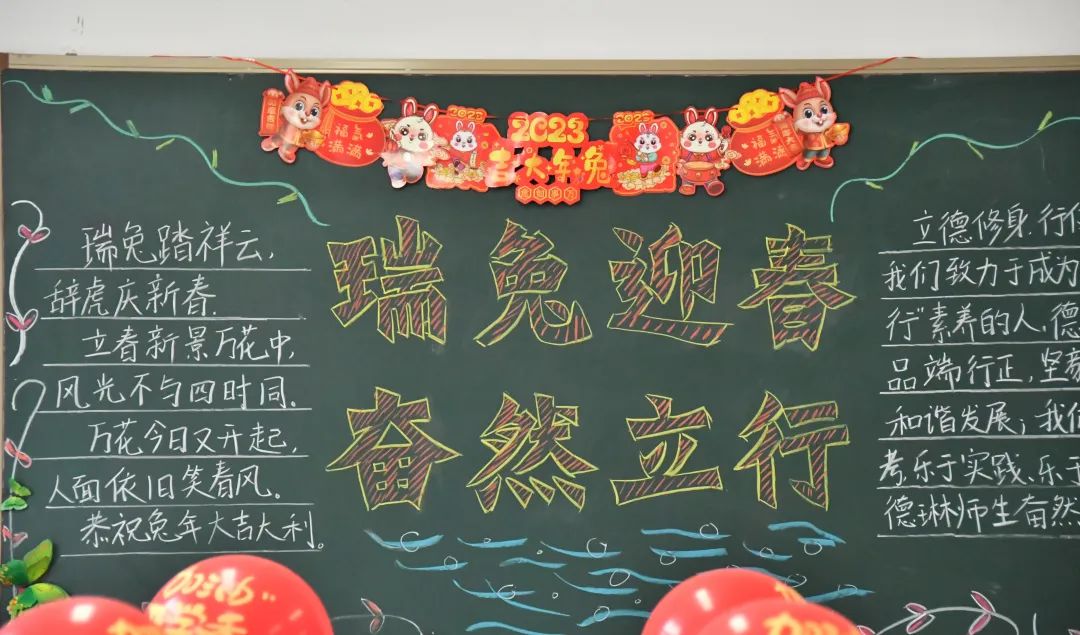 2023
2023
2023
吉大年兔
福
满满
福
满满
瑞兔迎春
奋然立行
瑞兔踏祥云,
辞虎庆新春.
立春新景万花中,
风光不与四时同.
万花今日又开起,
人面依旧笑春风.
恭祝兔年大吉大利。
立德修身.行
我们致力于成为
行"素养的人,德
品端行正,坚
和谐发展;我们
考,乐于实践、乐于
德琳师生奋然